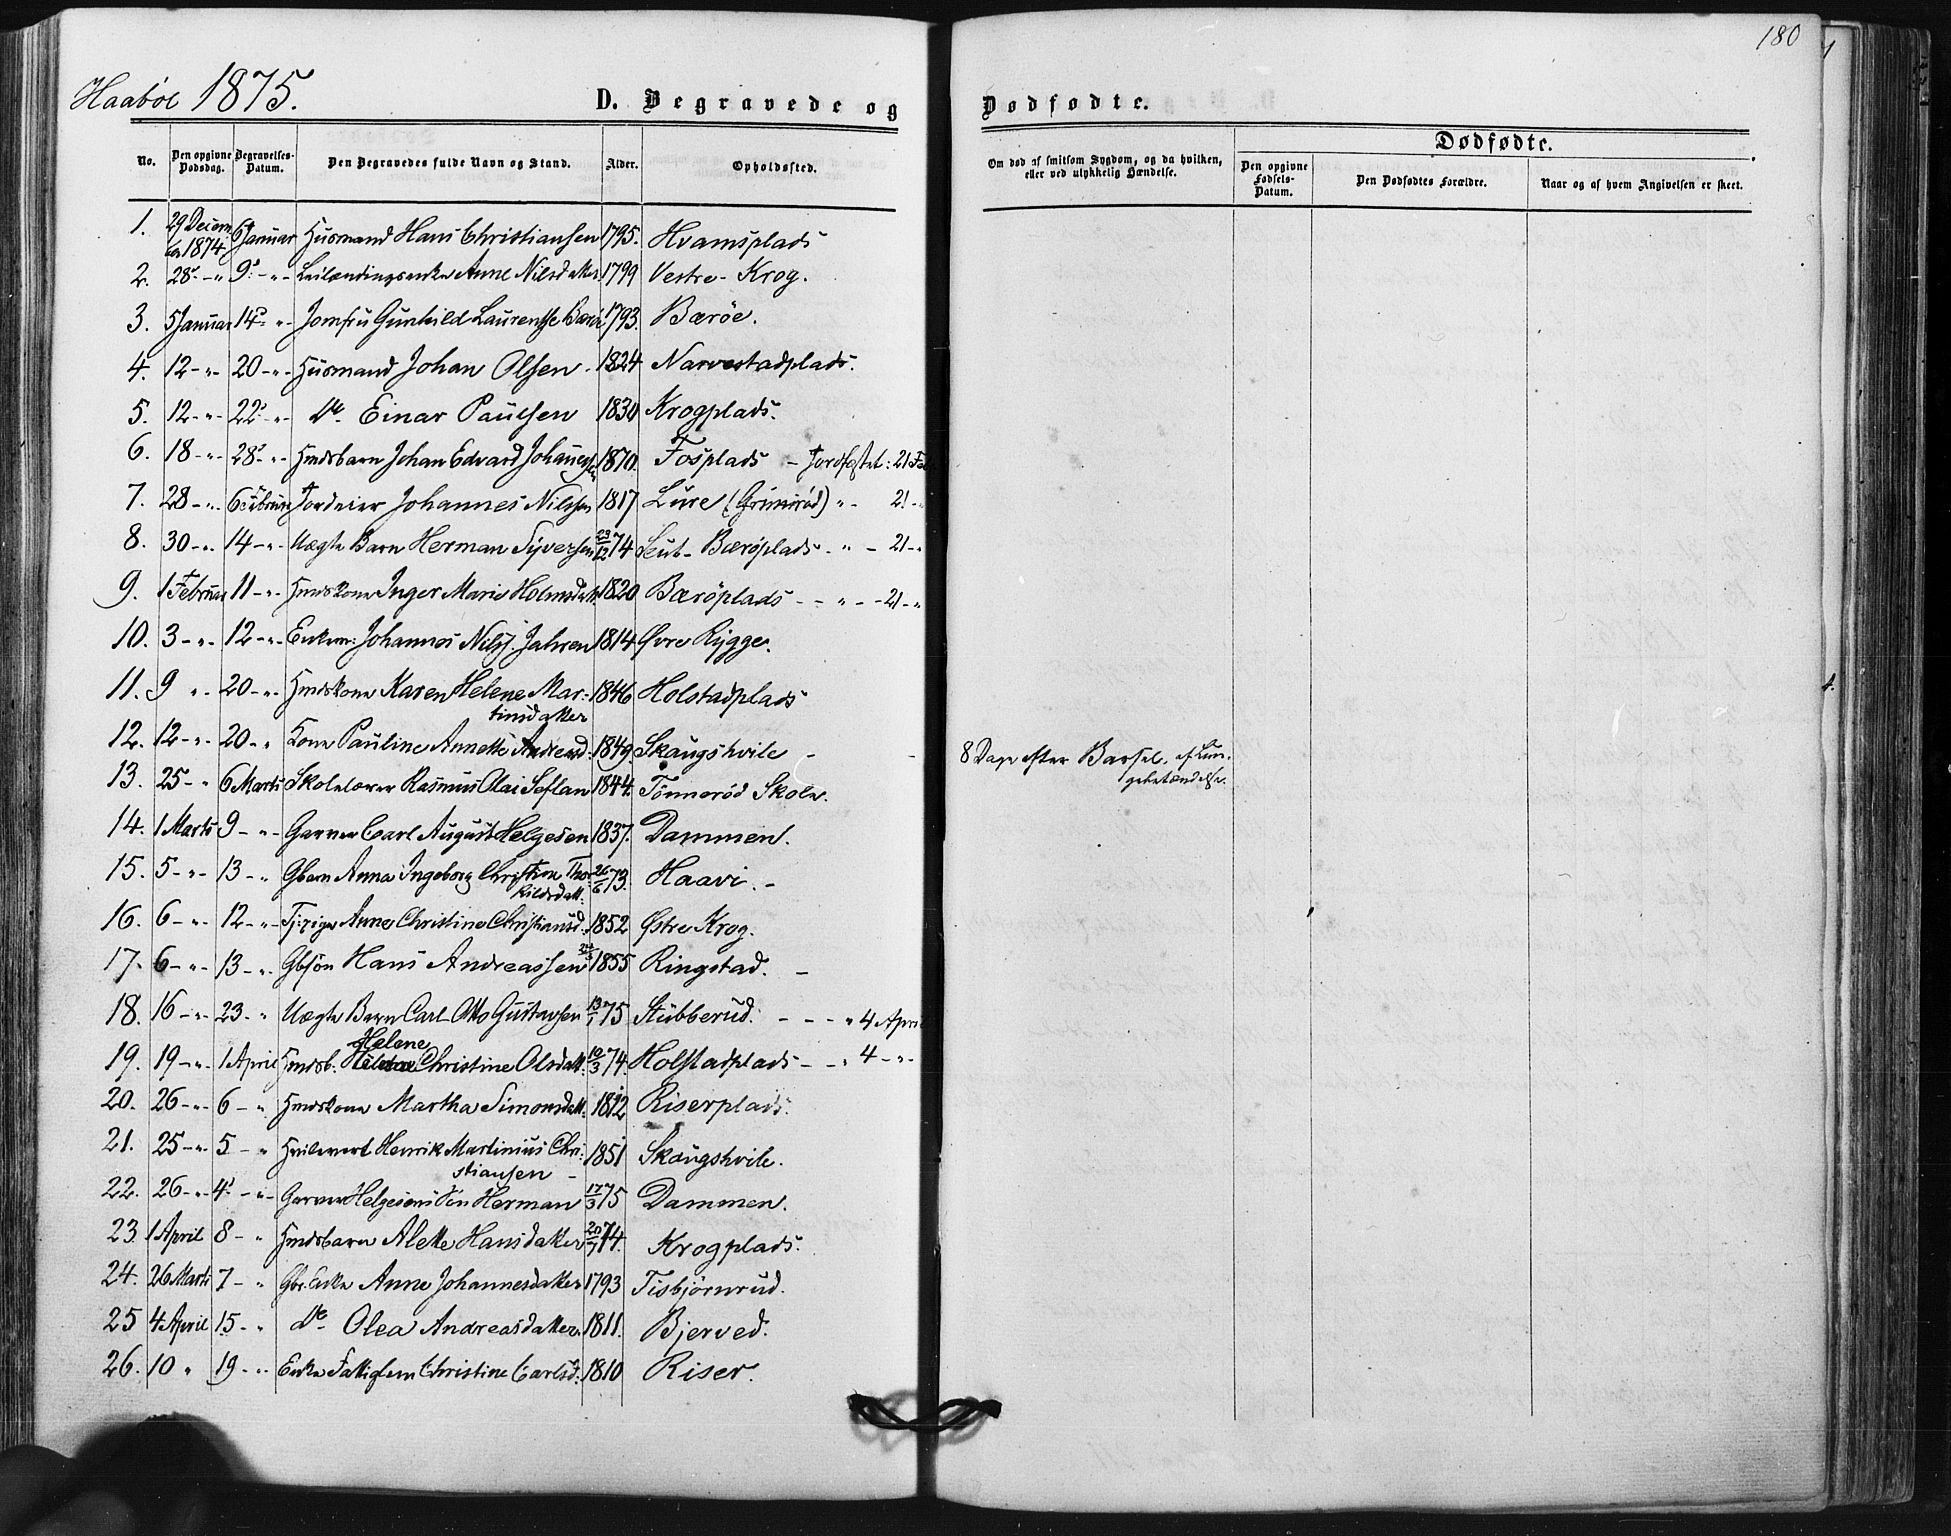 180
Haabøl 1875.
D. Begravede og Dødfødte.
No. Den opgivne Dødsdag. Begravelses-Datum. Den Begravedes fulde Navn og Stand. Alder. Opholdssted.
Om død af smitsom Sygdom, og da hvilken, eller ved ulykkelig Hændelse.
Dødfødte.
Den opgivne Fødsels-Datum. Den Dødfødtes Forældre. Naar og af hvem Angivelsen er skeet.
1. 29 Decem 6 Januar Husmand Hans Christiansen 1795. Hvamsplads
1874
2. 28 - " 9 - " - Leilændingsenke Anne Nilsdatter 1799 Vestre - Krog.
3. 5 Januar 14 - " - Jomfru Gunhild Laurentse Bærøe 1793. Bærøe.
4. 12 - " - 20 - " - Husmand Johan Olsen. 1824 Narvestadplads.
5. 12 - " - 22 - " - Do. Einar Paulsen 1830 Krogplads.
6. 18 - " - 28 - " - Hmdsbarn Johan Edvard Johannessen 1870. Fosplads - Jordfæstet: 21 Feb
7. 28 - " - 6 Februar Jordeier Johannes Nilssen 1817 Lure (Grimsrød) " - 21 - "
8. 30 - " - 14 - " - Uægte Barn Herman Syversen 23/12 74 Leut- Bærøplads - " - 21 - "
9. 1 Februar 11 - " - Hmdskone Inger Marie Holmsdatt. 1820 Bærøplads - - " - - 21 - "
10. 3 - " - 12 - " - Enkem: Johannes Nilss. Jahren 1814 Øvre Rygge.
11. 9 " - 20 - " - Hmdskone Karen Helene Mar- 1846 Holstadplads
tinsdatter
12. 12 - " - 20 - " Kone Pauline Annette Andreasd: 1849. Skaugshvile - - 8 Dage efter Barsel, af Lun-
gebetændelse.
13. 25 - " 6 Marts Skolelærer Rasmus Olai Seflan 1844. Tønnerød Skole.
14. 1 Marts 9 - " - Garver Carl August Helgesen 1837. Dammen.
15. 5 - " - 13 - " Gbarn Anna Ingeborg Christine Thor- 26/6 73. Haavi. -
kildsdatt.
16. 6 - " - 12 - " - Tj:pige Anne Christine Christiansd. 1852 Østre Krog.
17. 6 - " - 13 - " - Gbsøn Hans Andreassen 1855 Ringstad. -
18. 16 - " - 23 - " Uægte Barn Carl Otto Gustavsen 13/1 75 Stubberud. - - - " 4 April
Helene
19. 19 - " - 1 April Hmdsb. Christine Olsdatt. 10/3 74. Holstadplads - - " 4 - " -
20. 26 - " - 6 - " Hmdskone Martha Simonsdatt. 1812 Riserplads.
21. 25 - " - 5 - " Hvilevert Henrik Martinius Chri- 1851 Skaugshvile.
stiansen -
22. 26 - " - 4 - " - Garver Helgesens Søn Herman 17/3 75 Dammen.
23 1 April 8 - " Hmdsbarn Alette Hansdatter 20/7 74. Krogplads.
24. 26 Marts 7 - " Gbr. Enke Anne Johannesdatter 1793 Tisbjørnrud.
25 4 April 15 - " Do. Olea Andreasdatter 1811. Bjerved.
26. 10 " 19 - " Enke Fattiglem Christine Carlsd: 1810 Riser.